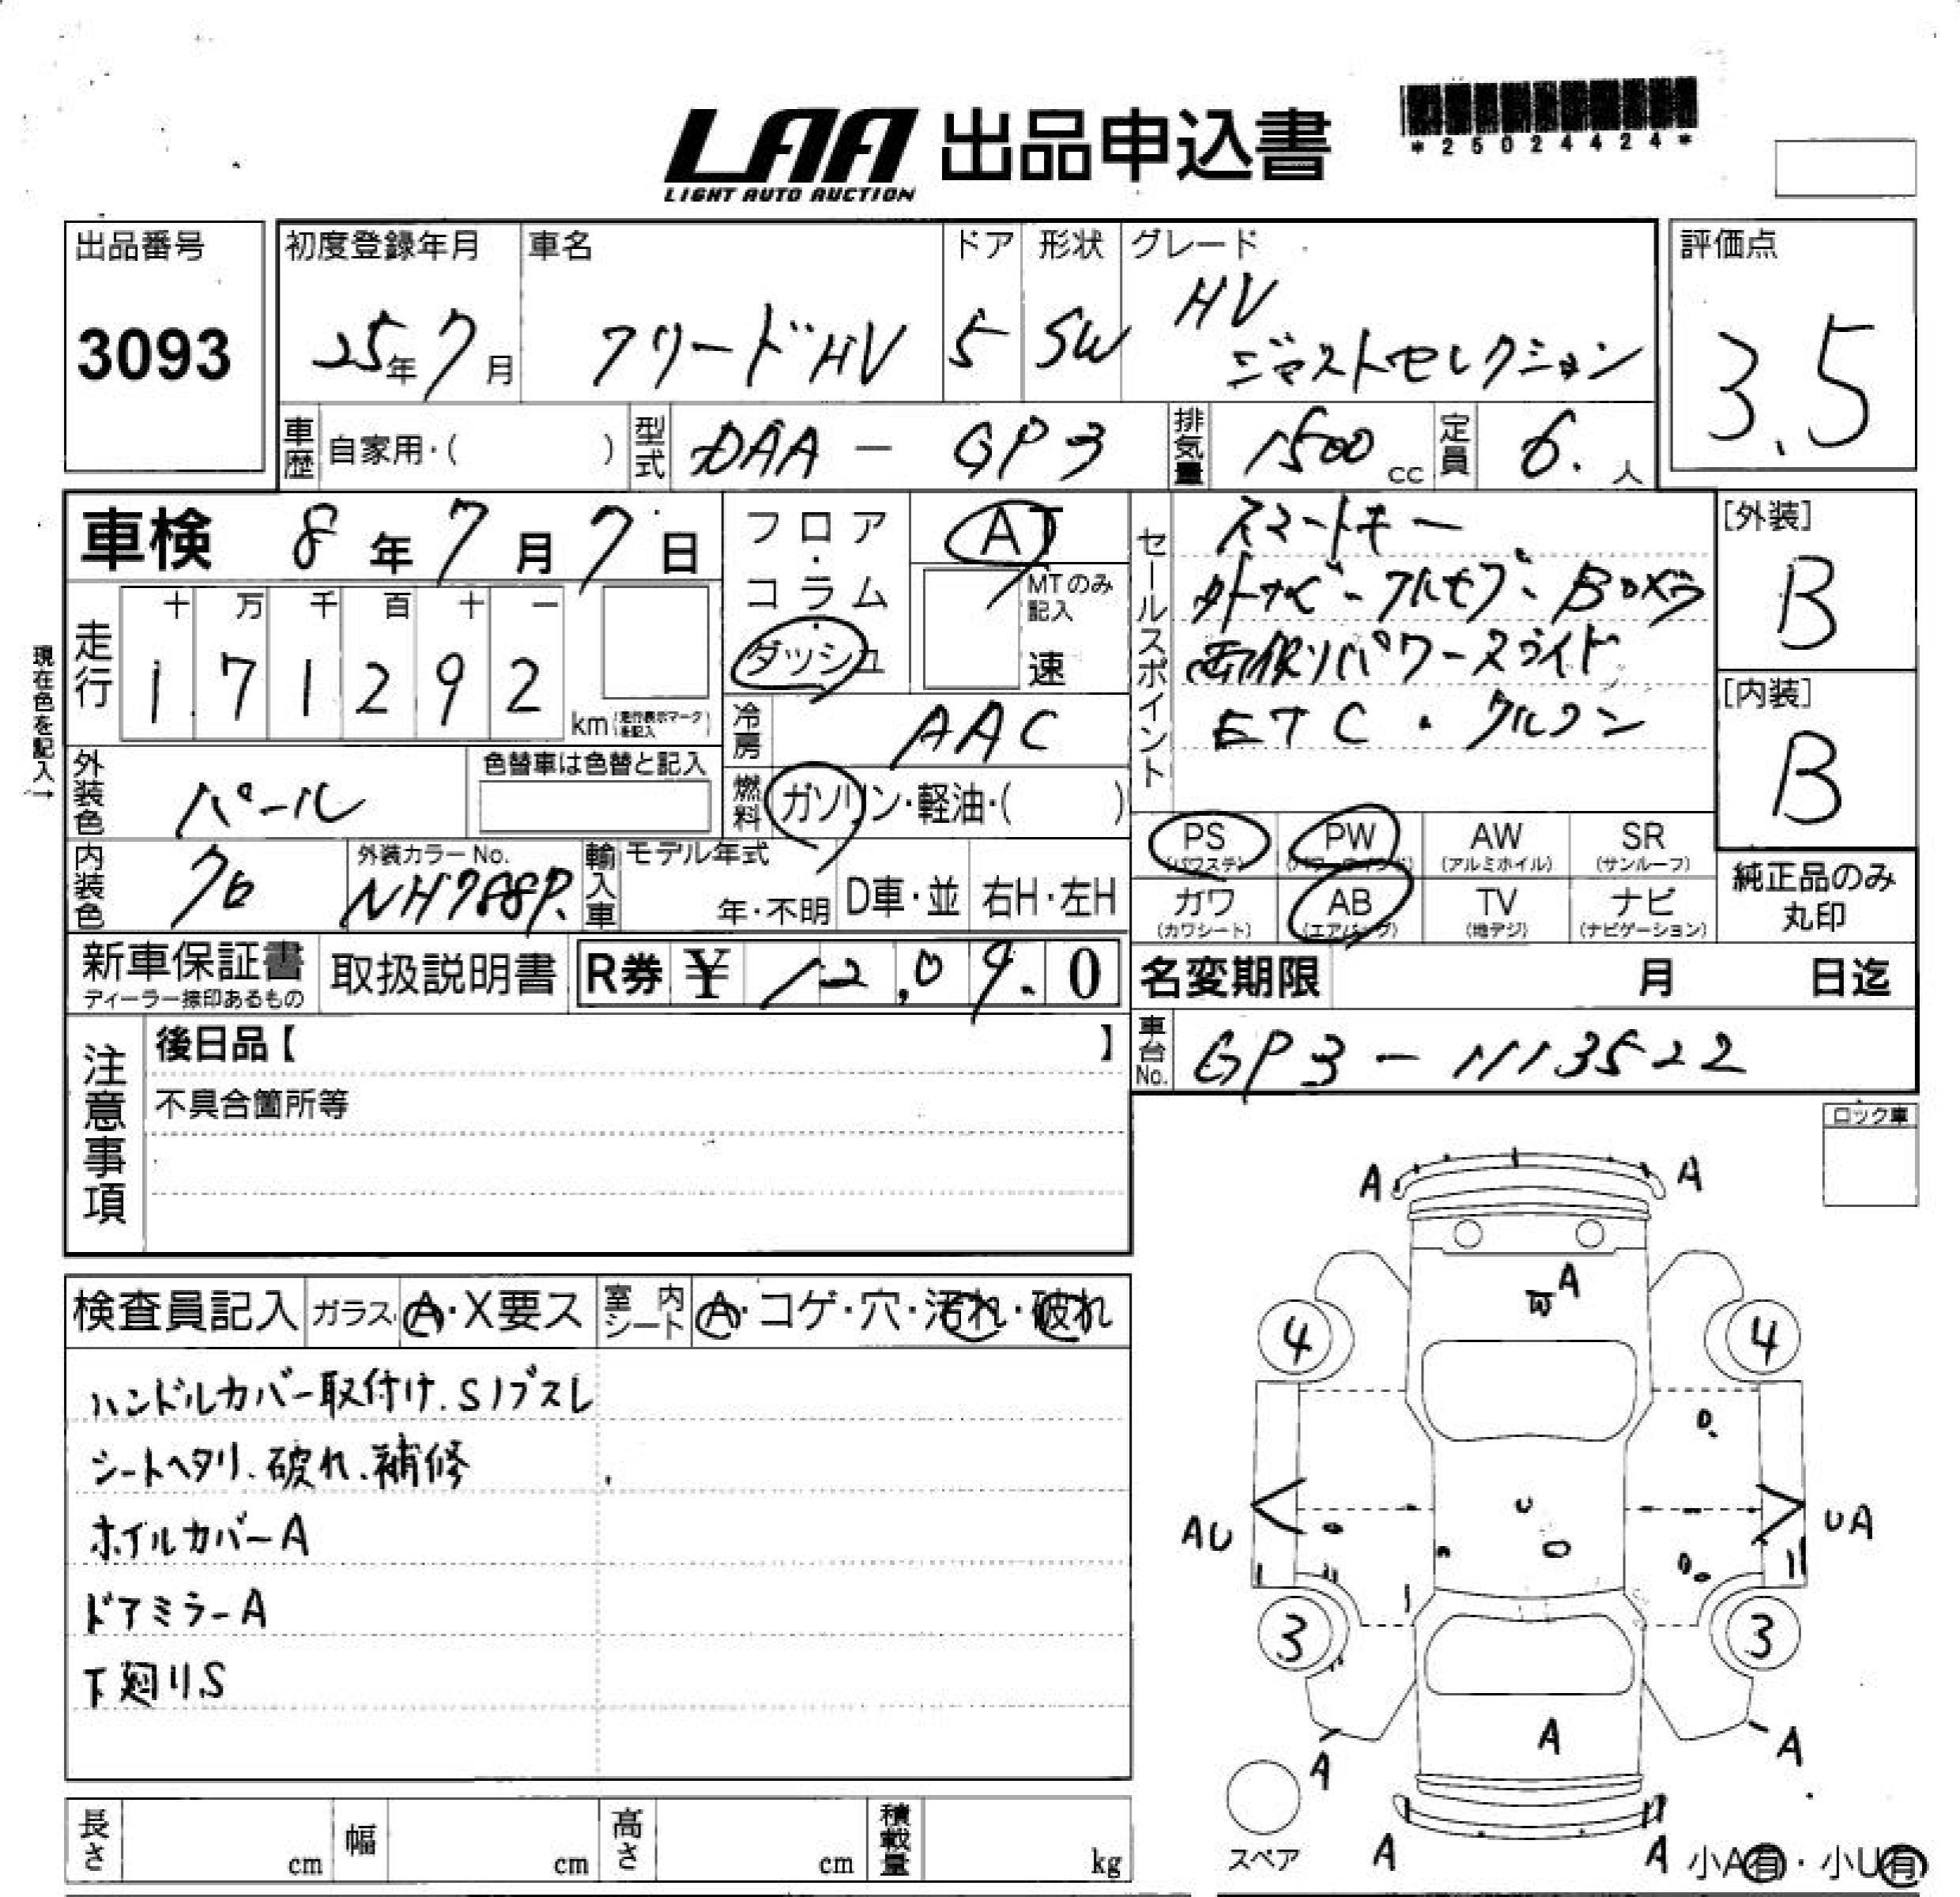 LAA 出品申込書
LIGHT AUTO AUCTION
*25024424*
出品番号
3093
初度登録年月
25年7月
車名
フリードHV
ドア
5
形状
SW
グレード
HV
ジャストセレクション
評価点
3.5
車歴 自家用・( )
型式 DAA - GP3
排気量 1500 cc
定員 6. 人
車検 8年7月7日
フロア・コラム・ダッシュ
AT
MTのみ記入
速
走行
十 万 千 百 十 一
1 7 1 2 9 2 km
走行表示マークを記入
現在色を記入→
冷房 AAC
外装色 パール
色替車は色替と記入
燃料 ガソリン・軽油・( )
内装色 クロ
外装カラーNo.
NH788P.
輸入車
モデル年式
年・不明
D車・並
右H・左H
セールスポイント
スマートキー
外ナビ・フルセグ・Bカメラ
両側パワースライド
ETC・
[外装]
B
[内装]
B
PS (パワステ)
PW (パワーウインド)
AW (アルミホイル)
SR (サンルーフ)
ガワ (カワシート)
AB (エアバッグ)
TV (地デジ)
ナビ (ナビゲーション)
純正品のみ
丸印
新車保証書
ディーラー捺印あるもの
取扱説明書
R券 ¥ 12,090
名変期限 月 日迄
車台No. GP3-1113522
注意事項
後日品【 】
不具合箇所等
ロック車
検査員記入
ガラス A・X要ス
室内シート A・コゲ・穴・汚れ・破れ
ハンドルカバー取付け.Sノブスレ
シートヘタリ.破れ.補修
ホイルカバーA
ドアミラーA
下廻りS
A A
A
4 4
AU UA
U
3 3
A
A A
スペア
A A
小A有・小U有
長さ cm
幅 cm
高さ cm
積載量 kg